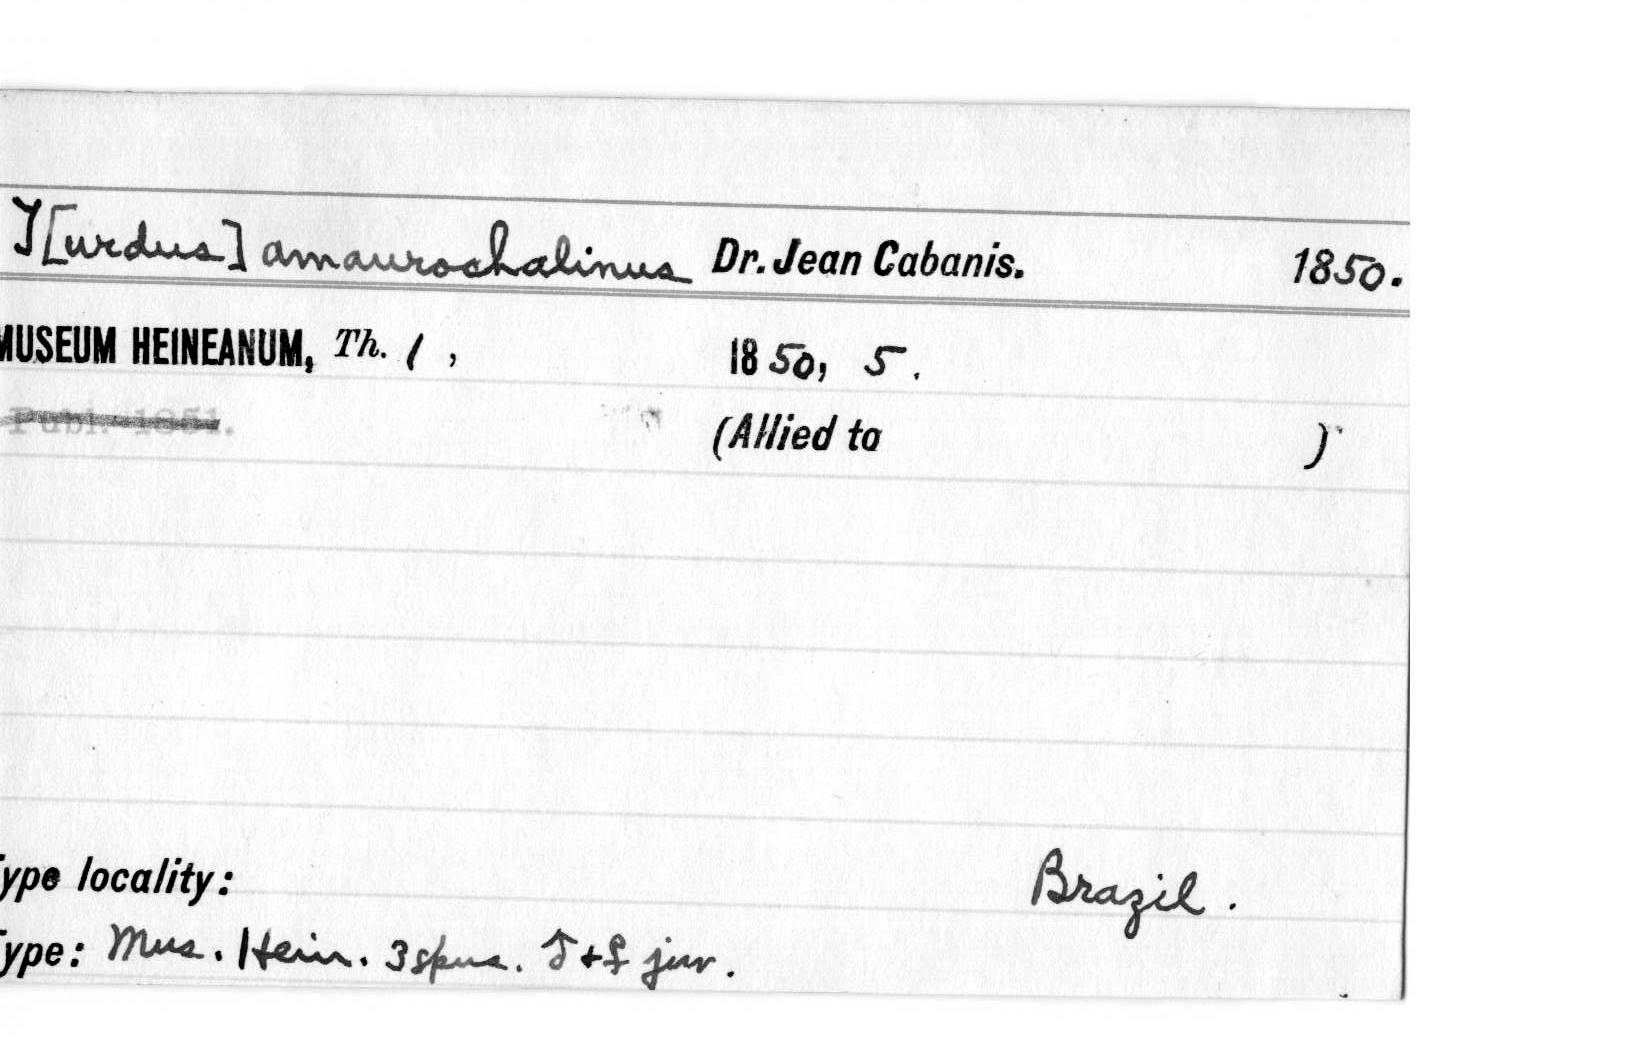 T[urdus] amaurochalinus Dr. Jean Cabanis. 1850.
MUSEUM HEINEANUM, Th. 1, 1850, 5.
Publ. 1851. (Allied to )
Type locality: Brazil.
Type: Mus. Hein. 3 spms. ♂ + ♀ juv.